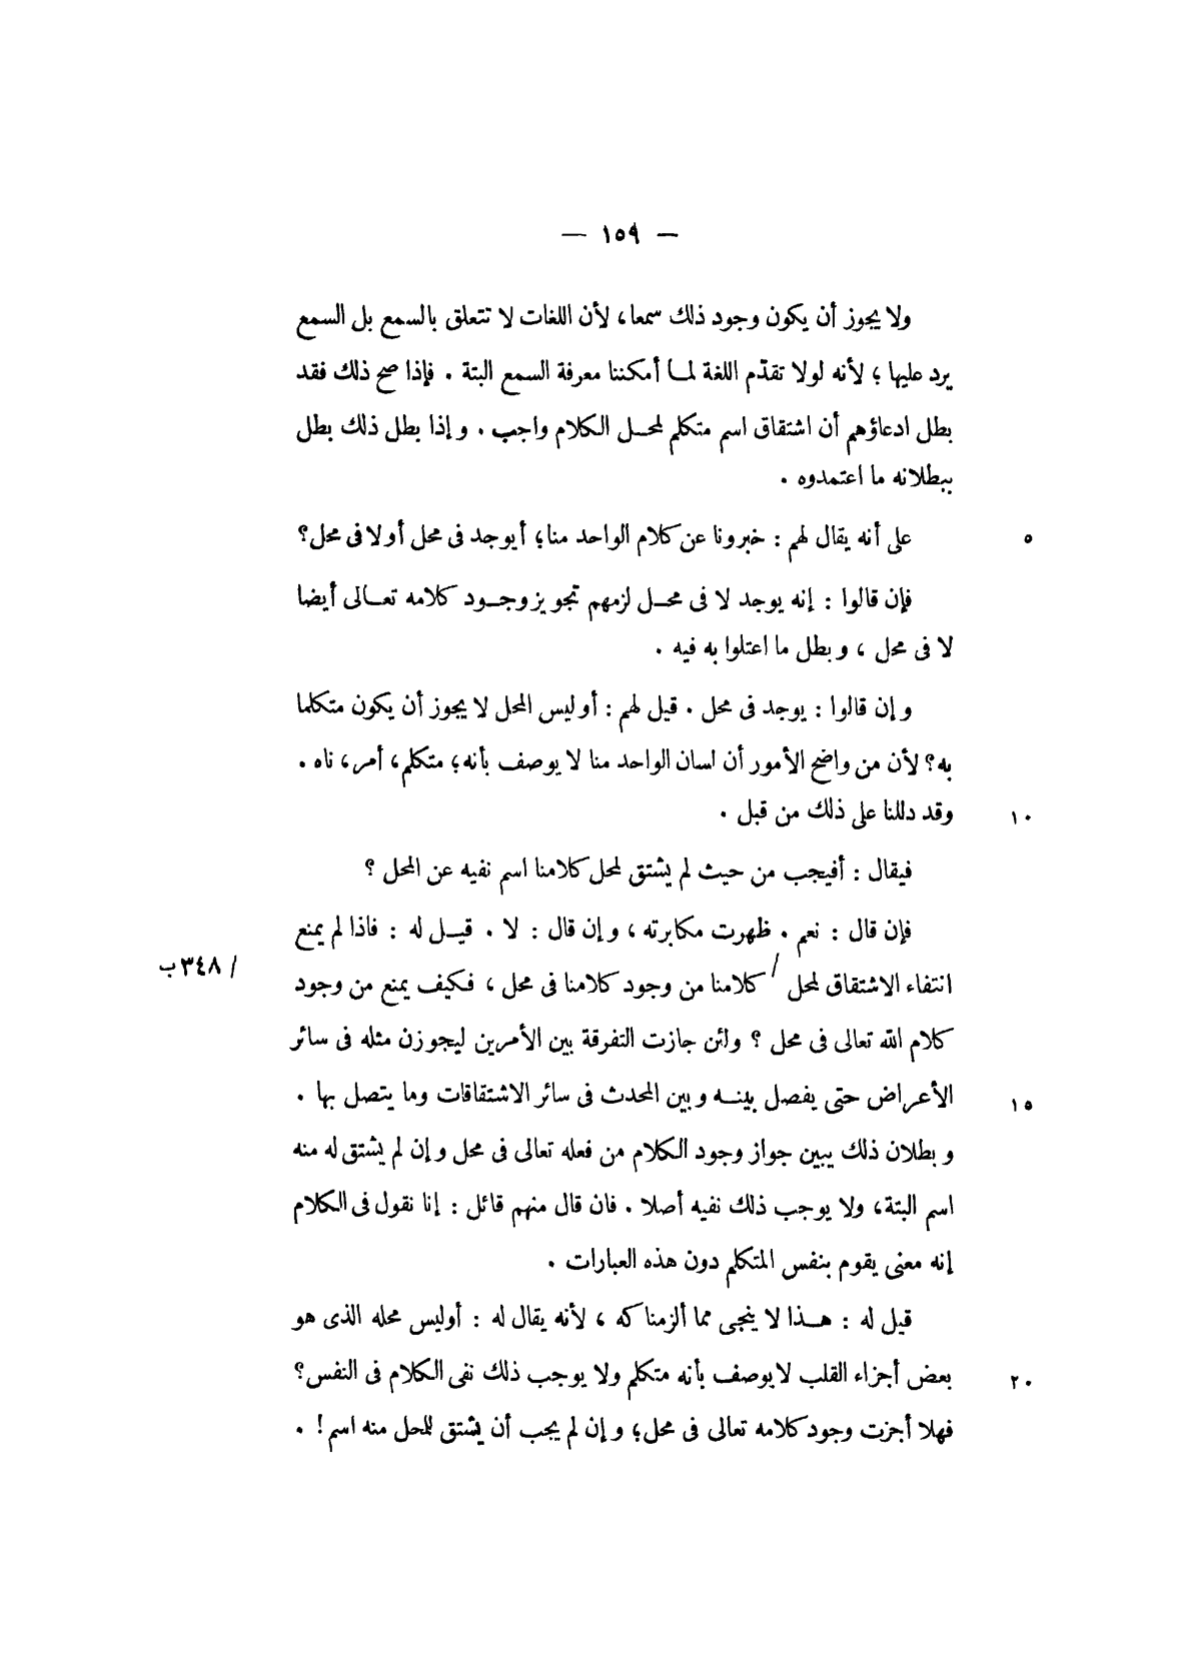 — ١٥٩ —
ولا يجوز أن يكون وجود ذلك سمعا، لأن اللغات لا تتعلق بالسمع بل السمع
يرد عليها ؛ لأنه لولا تقدّم اللغة لمــا أمكننا معرفة السمع البتة . فإذا صح ذلك فقد
بطل ادعاؤهم أن اشتقاق اسم متكلم لمحــل الكلام واجب . وإذا بطل ذلك بطل
ببطلانه ما اعتمدوه .
على أنه يقال لهم : خبرونا عن كلام الواحد منا؛ أيوجد فى محل أولا فى محل؟ ٥
فإن قالوا : إنه يوجد لا فى محــل لزمهم تجويز وجــود كلامه تعــالى أيضا
لا فى محل ، وبطل ما اعتلوا به فيه .
وإن قالوا : يوجد فى محل . قيل لهم : أوليس المحل لا يجوز أن يكون متكلما
به؟ لأن من واضح الأمور أن لسان الواحد منا لا يوصف بأنه؛ متكلم، أمر، ناه .
وقد دللنا على ذلك من قبل . ١٠
فيقال : أفيجب من حيث لم يشتق لمحل كلامنا اسم نفيه عن المحل ؟
فإن قال : نعم . ظهرت مكابرته ، وإن قال : لا . قيــل له : فاذا لم يمنع
انتفاء الاشتقاق لمحل / كلامنا من وجود كلامنا فى محل ، فكيف يمنع من وجود / ٣٤٨ ب
كلام الله تعالى فى محل ؟ ولئن جازت التفرقة بين الأمرين ليجوزن مثله فى سائر
الأعراض حتى يفصل بينــه وبين المحدث فى سائر الاشتقاقات وما يتصل بها . ١٥
وبطلان ذلك يبين جواز وجود الكلام من فعله تعالى فى محل وإن لم يشتق له منه
اسم البتة، ولا يوجب ذلك نفيه أصلا . فان قال منهم قائل : إنا نقول فى الكلام
إنه معنى يقوم بنفس المتكلم دون هذه العبارات .
قيل له : هــذا لا ينجى مما ألزمناكه ، لأنه يقال له : أوليس محله الذى هو
بعض أجزاء القلب لا يوصف بأنه متكلم ولا يوجب ذلك نفى الكلام فى النفس؟ ٢٠
فهلا أجزت وجود كلامه تعالى فى محل؛ وإن لم يجب أن يشتق للمحل منه اسم ! .